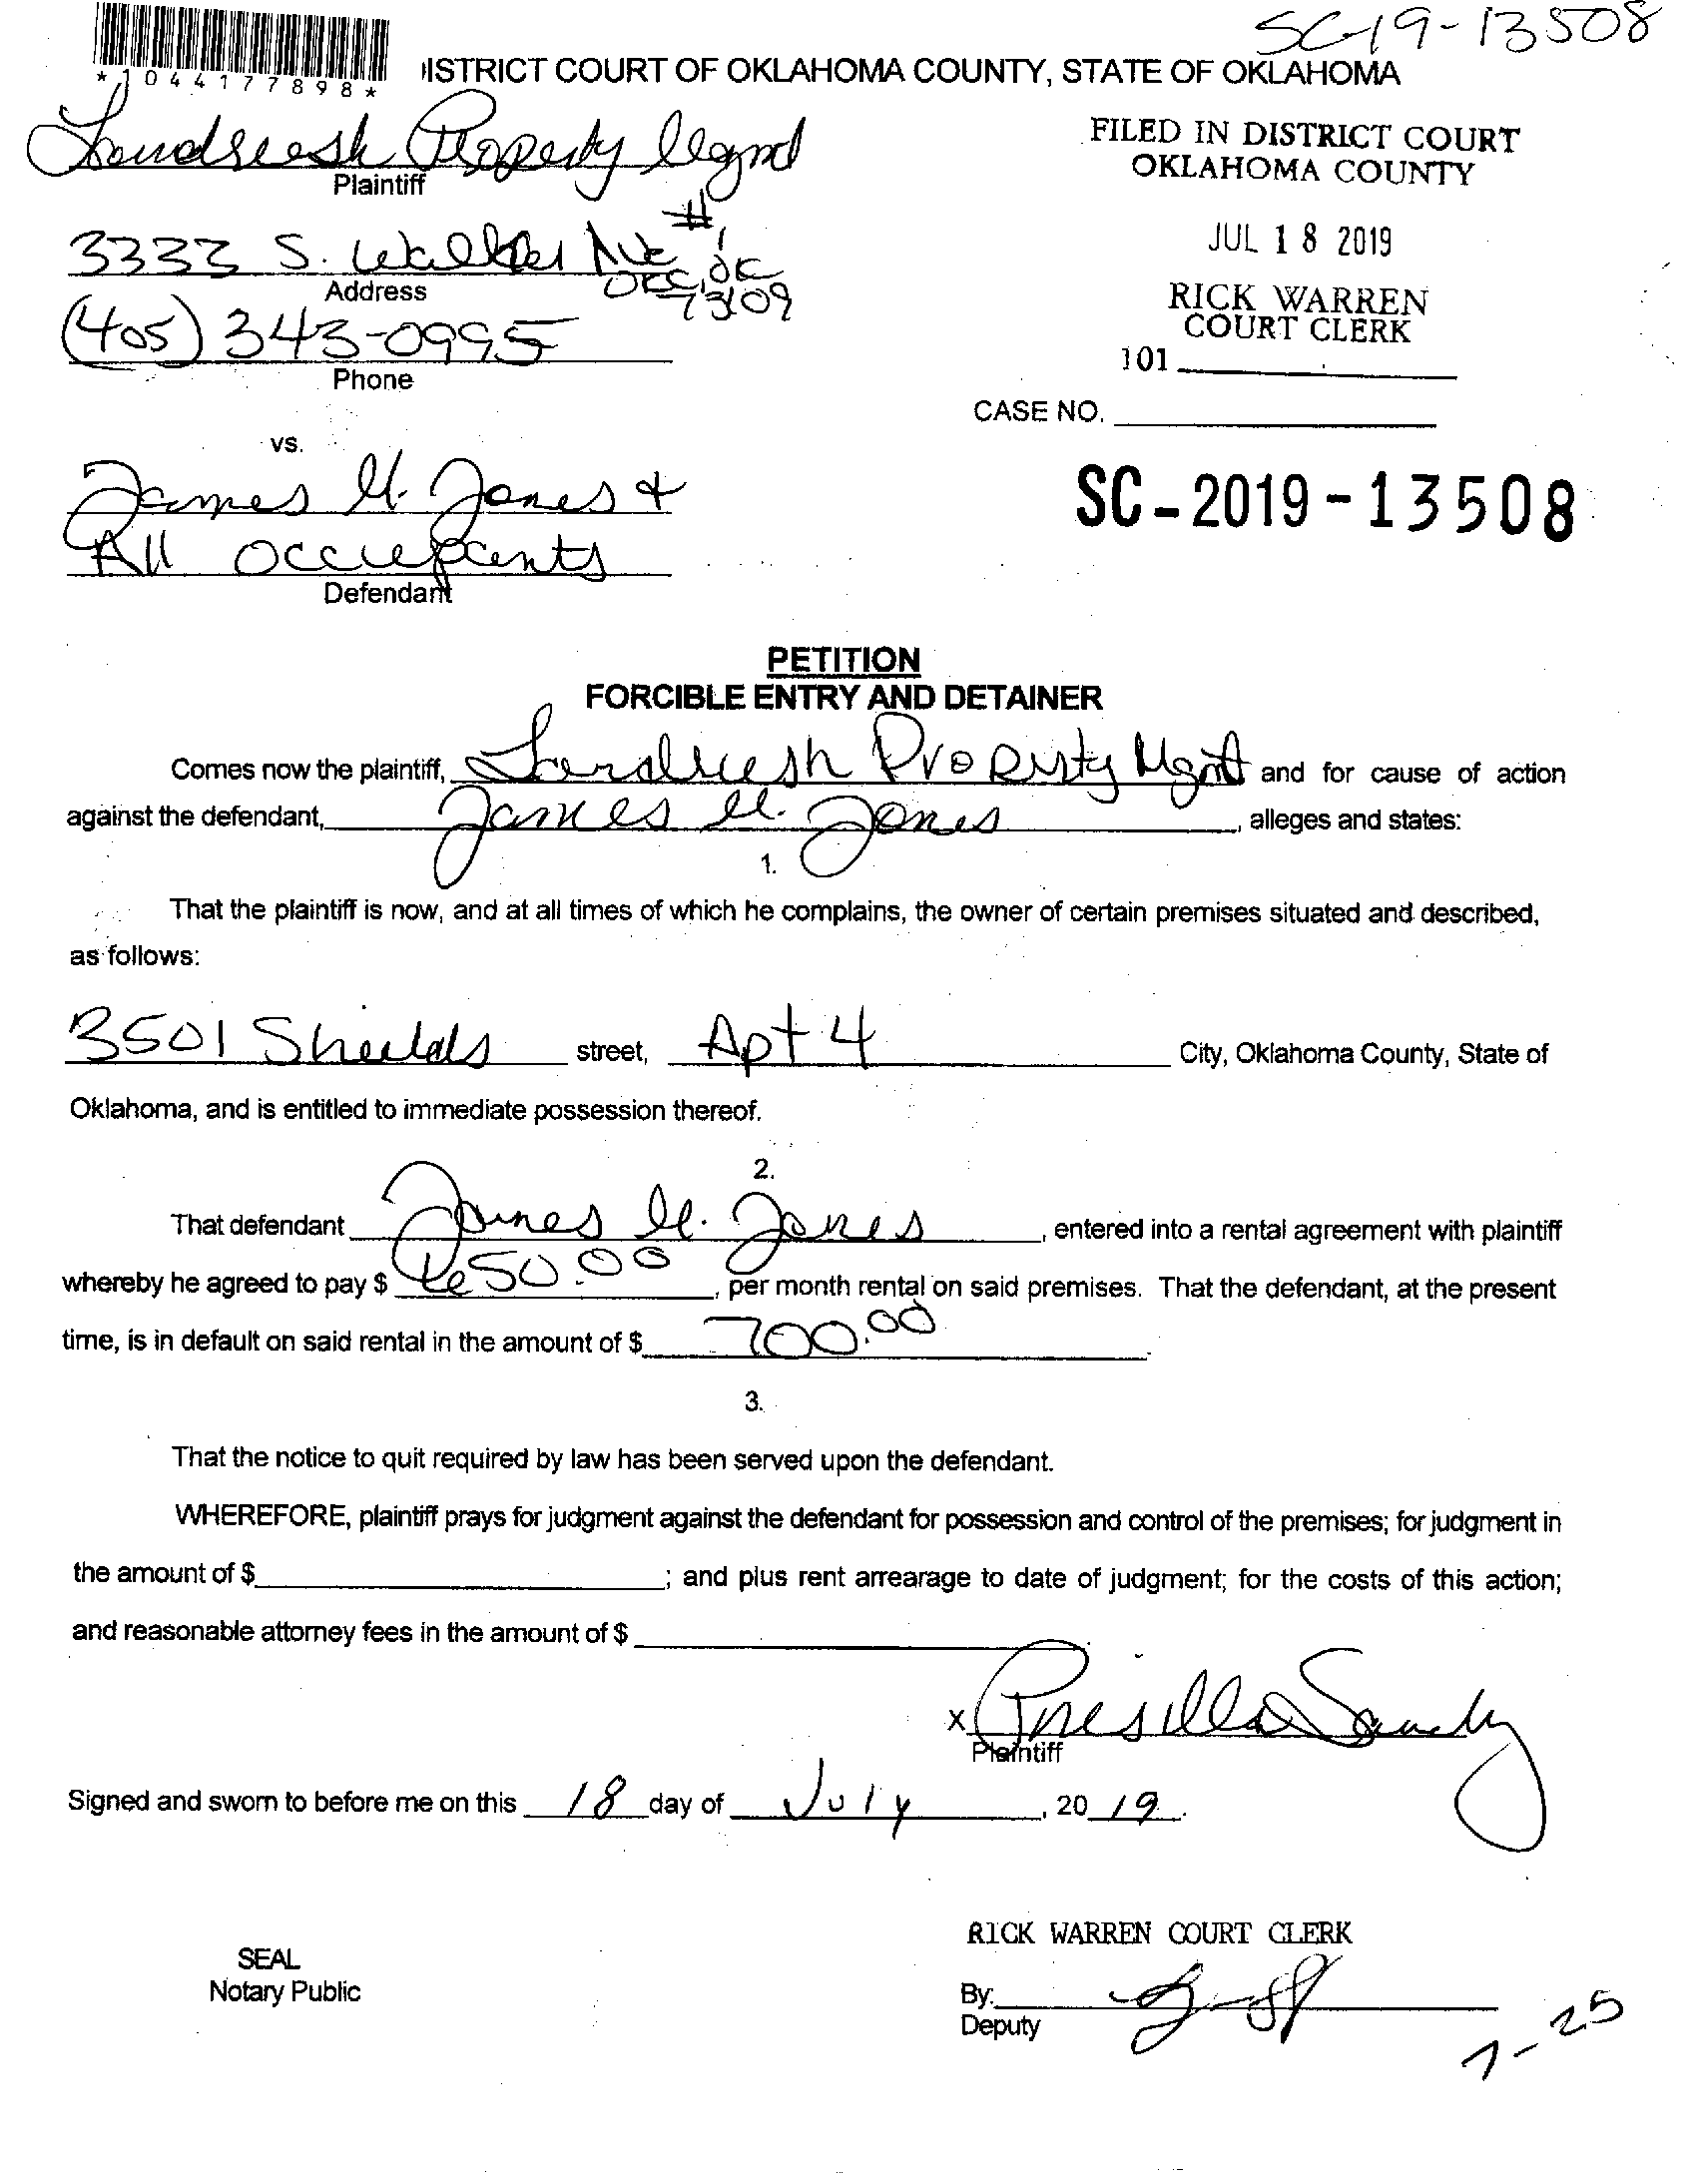 SC-19-13508
*1044177898*
ISTRICT COURT OF OKLAHOMA COUNTY, STATE OF OKLAHOMA
FILED IN DISTRICT COURT
OKLAHOMA COUNTY
Property Mgmt
Plaintiff
JUL 18 2019
3333 S. Walker Ave #1
OKC, OK
73109
Address
RICK WARREN
COURT CLERK
(405) 343-0995
101
Phone
CASE NO.
vs.
James M. Jones &
SC-2019-13508
All Occupants
Defendant
PETITION
FORCIBLE ENTRY AND DETAINER
Comes now the plaintiff, Property Mgmt and for cause of action
against the defendant, James M. Jones, alleges and states:
1.
That the plaintiff is now, and at all times of which he complains, the owner of certain premises situated and described,
as follows:
3501 Shields street, Apt 4 City, Oklahoma County, State of
Oklahoma, and is entitled to immediate possession thereof.
2.
That defendant James M. Jones, entered into a rental agreement with plaintiff
whereby he agreed to pay $ 650.00, per month rental on said premises. That the defendant, at the present
time, is in default on said rental in the amount of $ 700.00.
3.
That the notice to quit required by law has been served upon the defendant.
WHEREFORE, plaintiff prays for judgment against the defendant for possession and control of the premises; for judgment in
the amount of $; and plus rent arrearage to date of judgment; for the costs of this action;
and reasonable attorney fees in the amount of $
x Prisilla
Plaintiff
Signed and sworn to before me on this 18 day of July, 2019.
RICK WARREN COURT CLERK
SEAL
Notary Public
By:
Deputy
7-25